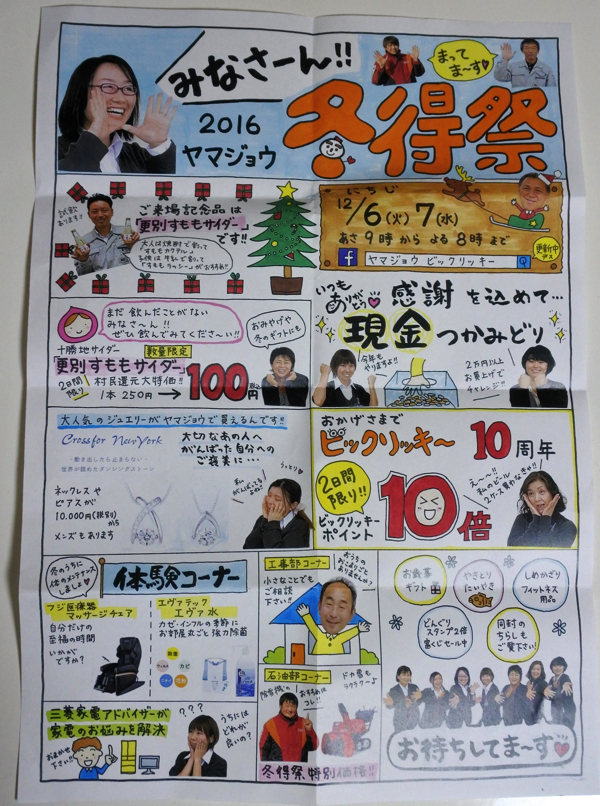 みなさーん!!
まって
ま〜す♡
2016
ヤマジョウ
冬得祭
試飲
あります!!
ご来場記念品は
「更別すももサイダー」
です!!
大人は焼酎で割って
「すももカクテル」
子供は牛乳で割って
「すももラッシー」がおすすめ!!
にちじ
12/6(火)7(水)
あさ9時からよる8時まで
f ヤマジョウ ビックリッキー
更新中
デス
まだ飲んだことがない
みなさ〜ん!!
ぜひ飲んでみてくださ〜い!!
おみやげや
冬のギフトにも
十勝地サイダー
数量限定
「更別すももサイダー」
2日間
限り
村民還元大特価!!
1本250円→100円
税込
いつも
ありがとう♡
感謝を込めて…
現金つかみどり
今年も
やりますよ!!
2万円以上
お買上げで
チャレンジ!!
大人気のジュエリーがヤマジョウで買えるんです!!
Crossfor NewYork
-動き出したら止まらない-
世界が認めたダンシングストーン
大切なあの人へ
がんばった自分への
ご褒美に…
ネックレスや
ピアスが
10,000円(税別)
から
メンズもあります
私
がんばってる
よね♡
うっとり♡
おかげさまで
ビックリッキー 10周年
2日間
限り!!
ビックリッキー
ポイント
10倍
え〜〜!!
私のビール
2ケース買わなきゃ!!
冬のうちに
体のメンテナンス
しましょ♡
体験コーナー
フジ医療器
マッサージチェア
自分だけの
至福の時間
いかが
ですか?
エヴァテック
エヴァ水
カゼ・インフルの季節に
お部屋丸ごと強力除菌
除菌
ウィルス
カビ
ニオイ
花粉
工事部コーナー
小さなことでも
ご相談
下さい!!
おうちの
おこまりごと
ありませんか?
石油部コーナー
除雪機の
おすすめは
コレ!!
ドカ雪も
ラクラク〜♪
冬得祭特別価格!!
三菱家電アドバイザーが
家電のお悩みを解決
おまかせ
下さい!!
???
うちには
どれが
良いの?
お歳暮
ギフト
やきとり
たいやき
しめかざり
フィットネス
用品
どんぐり
スタンプ2倍
富くじセール中
同封の
ちらしも
ご覧下さい!
お待ちしてま〜す♡